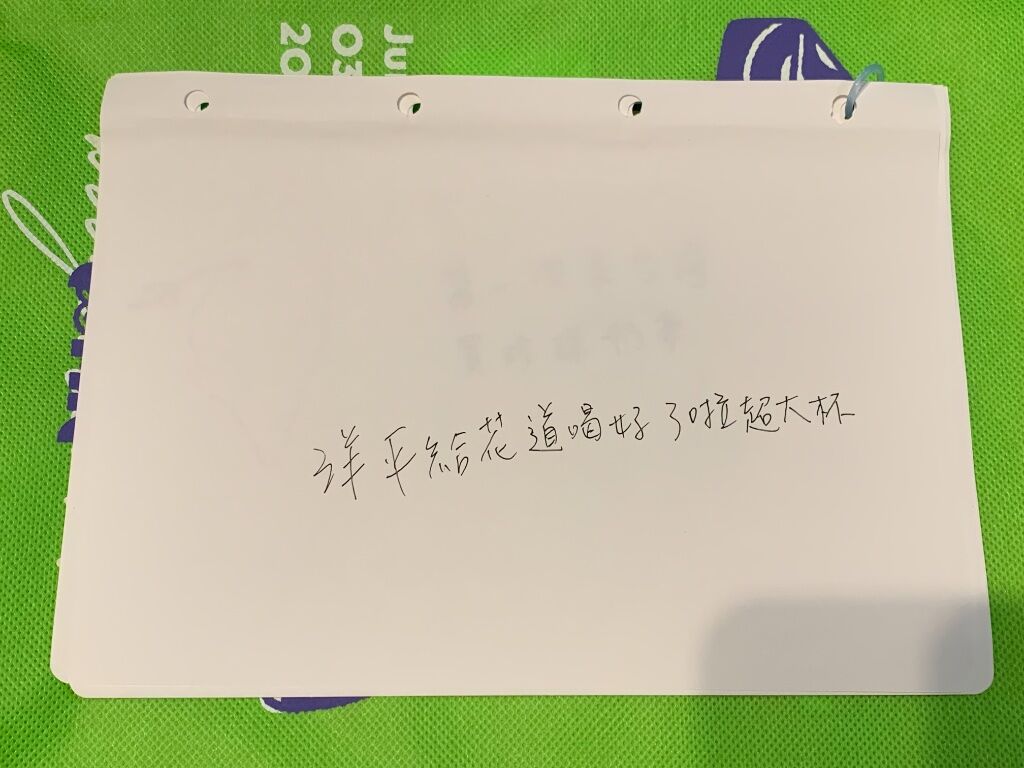 Ju
03
20
洋平給花道喝好了啦超大杯